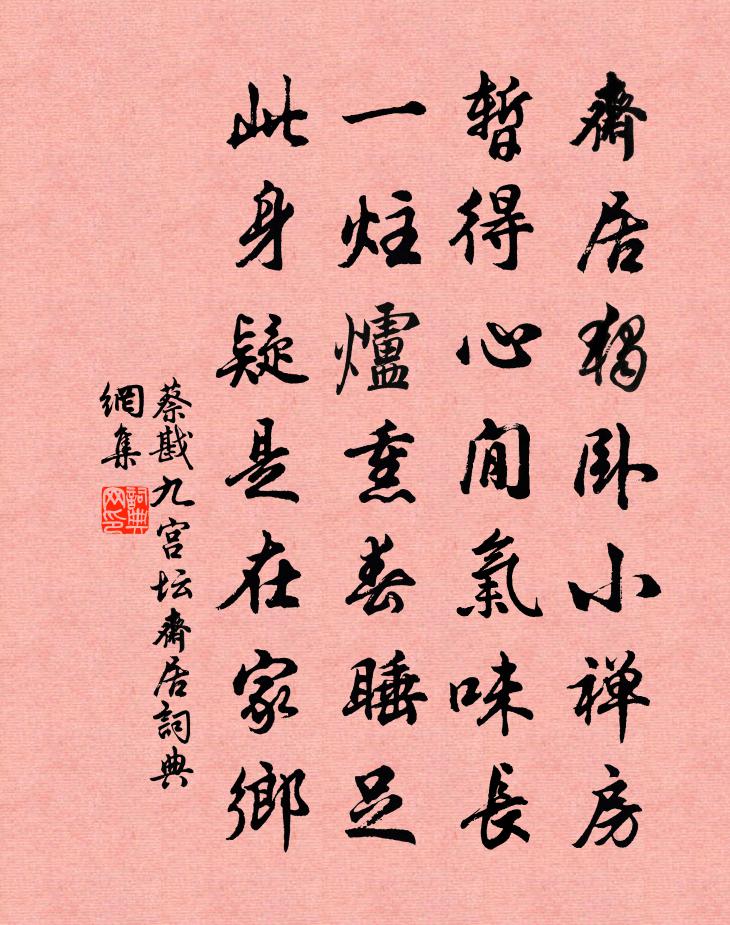 齋居獨卧小禅房
暫得心閒氣味長
一炷爐熏春睡足
此身疑是在家鄉
蔡戡九宫坛齋居詞典
網集
詞典
网印